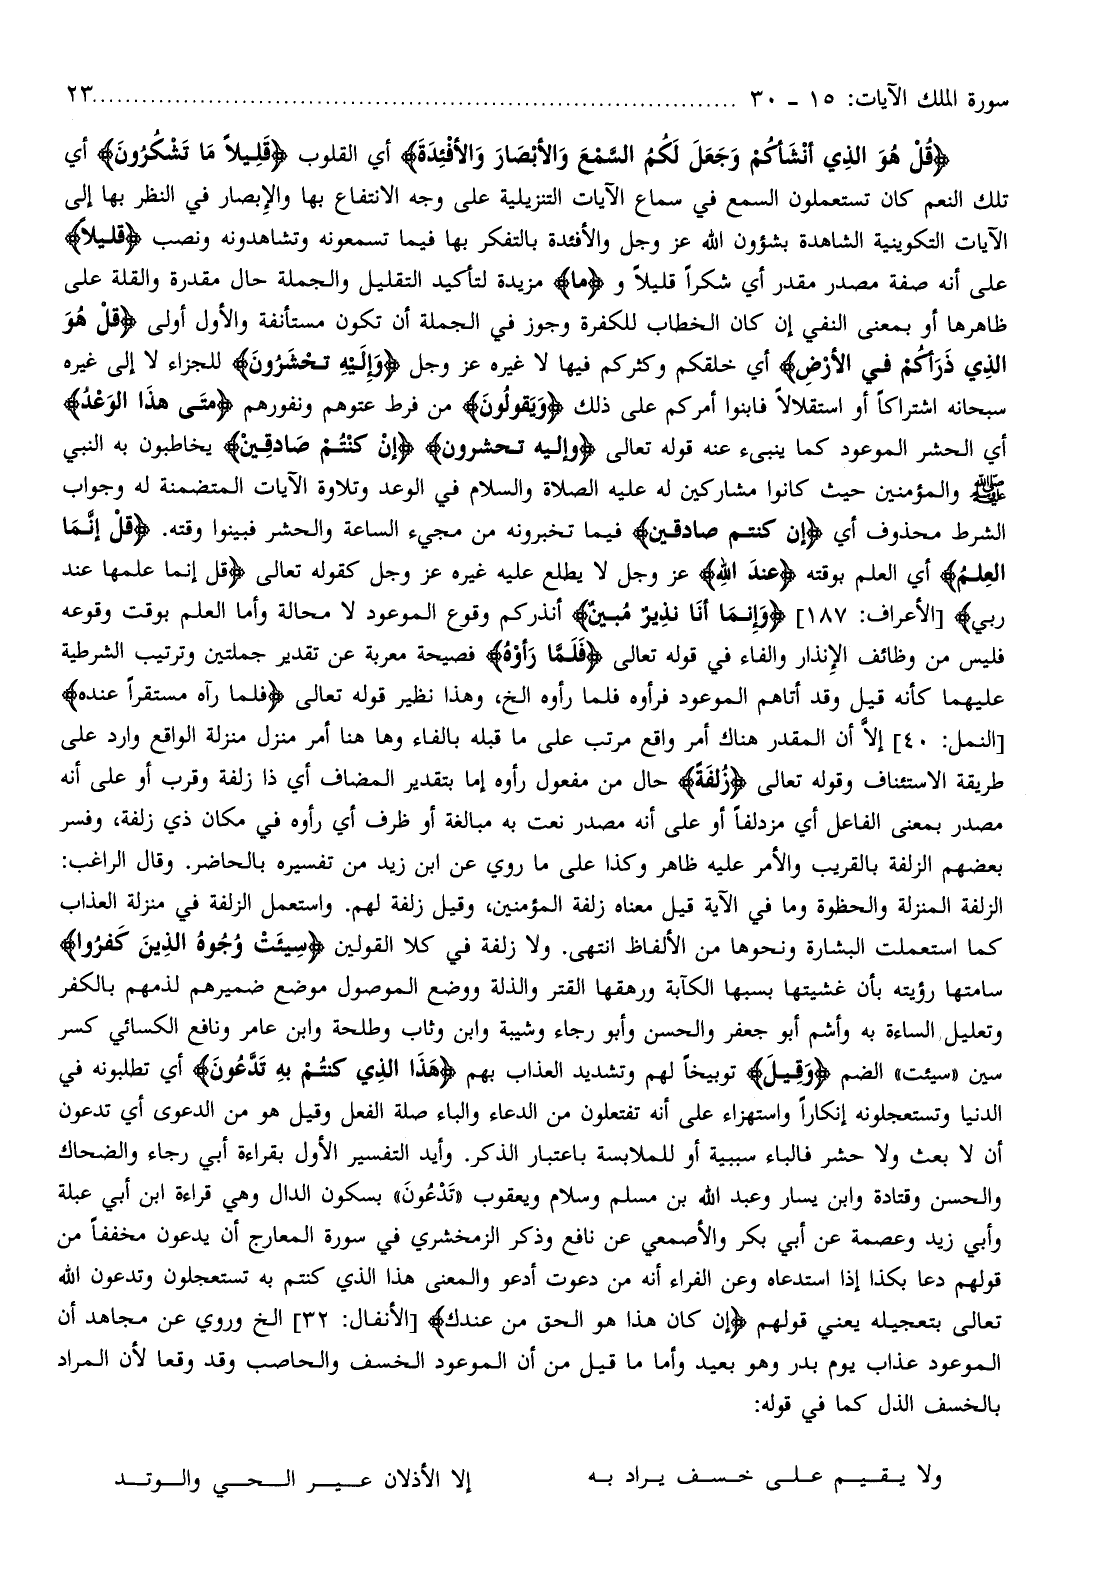 سورة الملك الآيات: ١٥ - ٣٠ ........................................................................ ٢٣
﴿قُلْ هُوَ الذِي أَنْشَأكُمْ وَجَعَلَ لَكُمُ السَّمْعَ وَالأَبْصَارَ وَالأفْئِدَةَ﴾ أي القلوب ﴿قَلِيلاً مَا تَشْكُرُونَ﴾ أي
تلك النعم كان تستعملون السمع في سماع الآيات التنزيلية على وجه الانتفاع بها والإبصار في النظر بها إلى
الآيات التكوينية الشاهدة بشؤون الله عز وجل والأفئدة بالتفكر بها فيما تسمعونه وتشاهدونه ونصب ﴿قليلاً﴾
على أنه صفة مصدر مقدر أي شكراً قليلاً و ﴿ما﴾ مزيدة لتأكيد التقليل والجملة حال مقدرة والقلة على
ظاهرها أو بمعنى النفي إن كان الخطاب للكفرة وجوز في الجملة أن تكون مستأنفة والأول أولى ﴿قلْ هُوَ
الذِي ذَرَأكُمْ في الأرْضِ﴾ أي خلقكم وكثركم فيها لا غيره عز وجل ﴿وَإِلَيْهِ تحْشَرُونَ﴾ للجزاء لا إلى غيره
سبحانه اشتراكاً أو استقلالاً فابنوا أمركم على ذلك ﴿وَيَقولُونَ﴾ من فرط عتوهم ونفورهم ﴿متَى هذَا الوَعْدُ﴾
أي الحشر الموعود كما ينبىء عنه قوله تعالى ﴿وإليه تحشرون﴾ ﴿إنْ كنْتُم صَادقِينْ﴾ يخاطبون به النبي
ﷺ والمؤمنين حيث كانوا مشاركين له عليه الصلاة والسلام في الوعد وتلاوة الآيات المتضمنة له وجواب
الشرط محذوف أي ﴿إن كنتم صادقين﴾ فيما تخبرونه من مجيء الساعة والحشر فبينوا وقته. ﴿قلْ إنَّمَا
العِلمُ﴾ أي العلم بوقته ﴿عندَ اللهِ﴾ عز وجل لا يطلع عليه غيره عز وجل كقوله تعالى ﴿قل إنما علمها عند
ربي﴾ [الأعراف: ١٨٧] ﴿وَإنمَا أنَا نذِيرٌ مُبينٌ﴾ أنذركم وقوع الموعود لا محالة وأما العلم بوقت وقوعه
فليس من وظائف الإنذار والفاء في قوله تعالى ﴿فَلَمَّا رَأوْهُ﴾ فصيحة معربة عن تقدير جملتين وترتيب الشرطية
عليهما كأنه قيل وقد أتاهم الموعود فرأوه فلما رأوه الخ، وهذا نظير قوله تعالى ﴿فلما رآه مستقراً عنده﴾
[النمل: ٤٠] إلاَّ أن المقدر هناك أمر واقع مرتب على ما قبله بالفاء وها هنا أمر منزل منزلة الواقع وارد على
طريقة الاستئناف وقوله تعالى ﴿زُلفَةً﴾ حال من مفعول رأوه إما بتقدير المضاف أي ذا زلفة وقرب أو على أنه
مصدر بمعنى الفاعل أي مزدلفاً أو على أنه مصدر نعت به مبالغة أو ظرف أي رأوه في مكان ذي زلفة، وفسر
بعضهم الزلفة بالقريب والأمر عليه ظاهر وكذا على ما روي عن ابن زيد من تفسيره بالحاضر. وقال الراغب:
الزلفة المنزلة والحظوة وما في الآية قيل معناه زلفة المؤمنين، وقيل زلفة لهم. واستعمل الزلفة في منزلة العذاب
كما استعملت البشارة ونحوها من الألفاظ انتهى. ولا زلفة في كلا القولين ﴿سِيئَتْ وُجُوهُ الذِينَ كَفرُوا﴾
سامتها رؤيته بأن غشيتها بسببها الكآبة ورهقها القتر والذلة ووضع الموصول موضع ضميرهم لذمهم بالكفر
وتعليل الساءة به وأشم أبو جعفر والحسن وأبو رجاء وشيبة وابن وثاب وطلحة وابن عامر ونافع الكسائي كسر
سين «سيئت» الضم ﴿وَقِيلَ﴾ توبيخاً لهم وتشديد العذاب بهم ﴿هَذَا الذِي كنتُمْ بِهِ تَدَّعُونَ﴾ أي تطلبونه في
الدنيا وتستعجلونه إنكاراً واستهزاء على أنه تفتعلون من الدعاء والباء صلة الفعل وقيل هو من الدعوى أي تدعون
أن لا بعث ولا حشر فالباء سببية أو للملابسة باعتبار الذكر. وأيد التفسير الأول بقراءة أبي رجاء والضحاك
والحسن وقتادة وابن يسار وعبد الله بن مسلم وسلام ويعقوب «تَدْعُونَ» بسكون الدال وهي قراءة ابن أبي عبلة
وأبي زيد وعصمة عن أبي بكر والأصمعي عن نافع وذكر الزمخشري في سورة المعارج أن يدعون مخففاً من
قولهم دعا بكذا إذا استدعاه وعن الفراء أنه من دعوت أدعو والمعنى هذا الذي كنتم به تستعجلون وتدعون الله
تعالى بتعجيله يعني قولهم ﴿إن كان هذا هو الحق من عندك﴾ [الأنفال: ٣٢] الخ وروي عن مجاهد أن
الموعود عذاب يوم بدر وهو بعيد وأما ما قيل من أن الموعود الخسف والحاصب وقد وقعا لأن المراد
بالخسف الذل كما في قوله:
ولا يقيم على خسف يراد به إلا الأذلان عير الحي والوتد